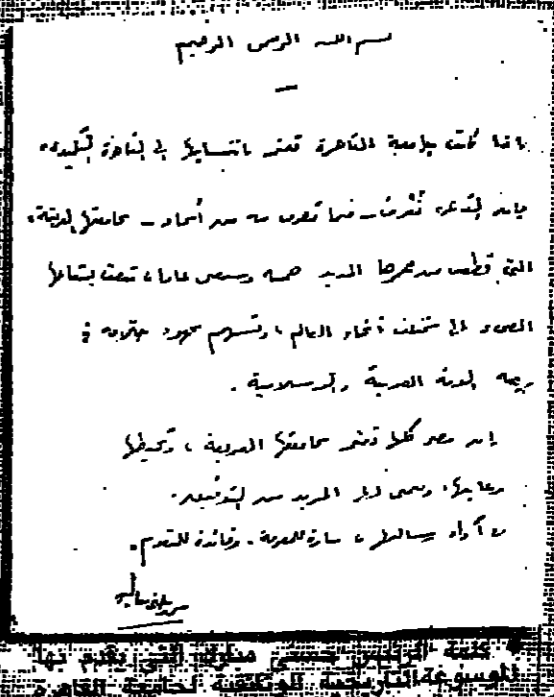 بسم الله الرحمن الرحيم
إذا كانت جامعة القاهرة تعتز بانتسابها إلى القاهرة
فإن القاهرة تعرف فيما تعرف به من أمجاد - جامعتها العريقة،
التي قطعت من عمرها المديد خمسة وسبعين عاما، تبعث بشعاعها
المضيء إلى مختلف أنحاء العالم، وتسهم بجهود خلاقة في
الأمة العربية والإسلامية.
إن مصر كلها تعتز بجامعتها العريقة، وتحيطها
برعايتها، وتتمنى لها المزيد من التوفيق.
في أداء رسالتها، منارة للمعرفة. وقائدة للتقدم.
كلمة الرئيس حسني مبارك التي تقدم بها
للموسوعة التاريخية الوثائقية لجامعة القاهرة